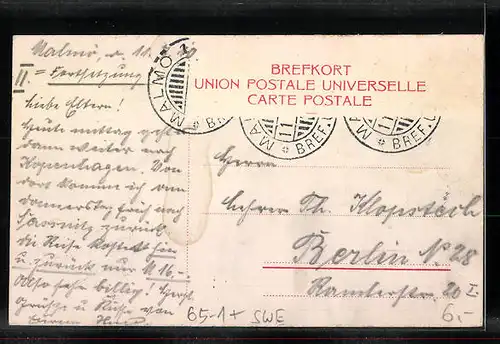 Malmö, d. 11.
II. = Fortsetzung
Liebe Eltern!
Heute mittag geht's
dann weiter nach
Kopenhagen. Von
dort komm ich am
Donnerstag früh nach
Sassnitz zurück
die Reise kostet hin
u. zurück nur M 16.-
Also sehr billig! Herzl.
Grüsse u. Küsse von
Eurem
BREFKORT
UNION POSTALE UNIVERSELLE
CARTE POSTALE
MALMÖ 1
BREF.
MALMÖ 11 BREF.
11 BREF.
Herrn
Lehrer Th. Klopstech
Berlin N. 28
Ramlerstr. 20 I
65-1+ SWE
6.-